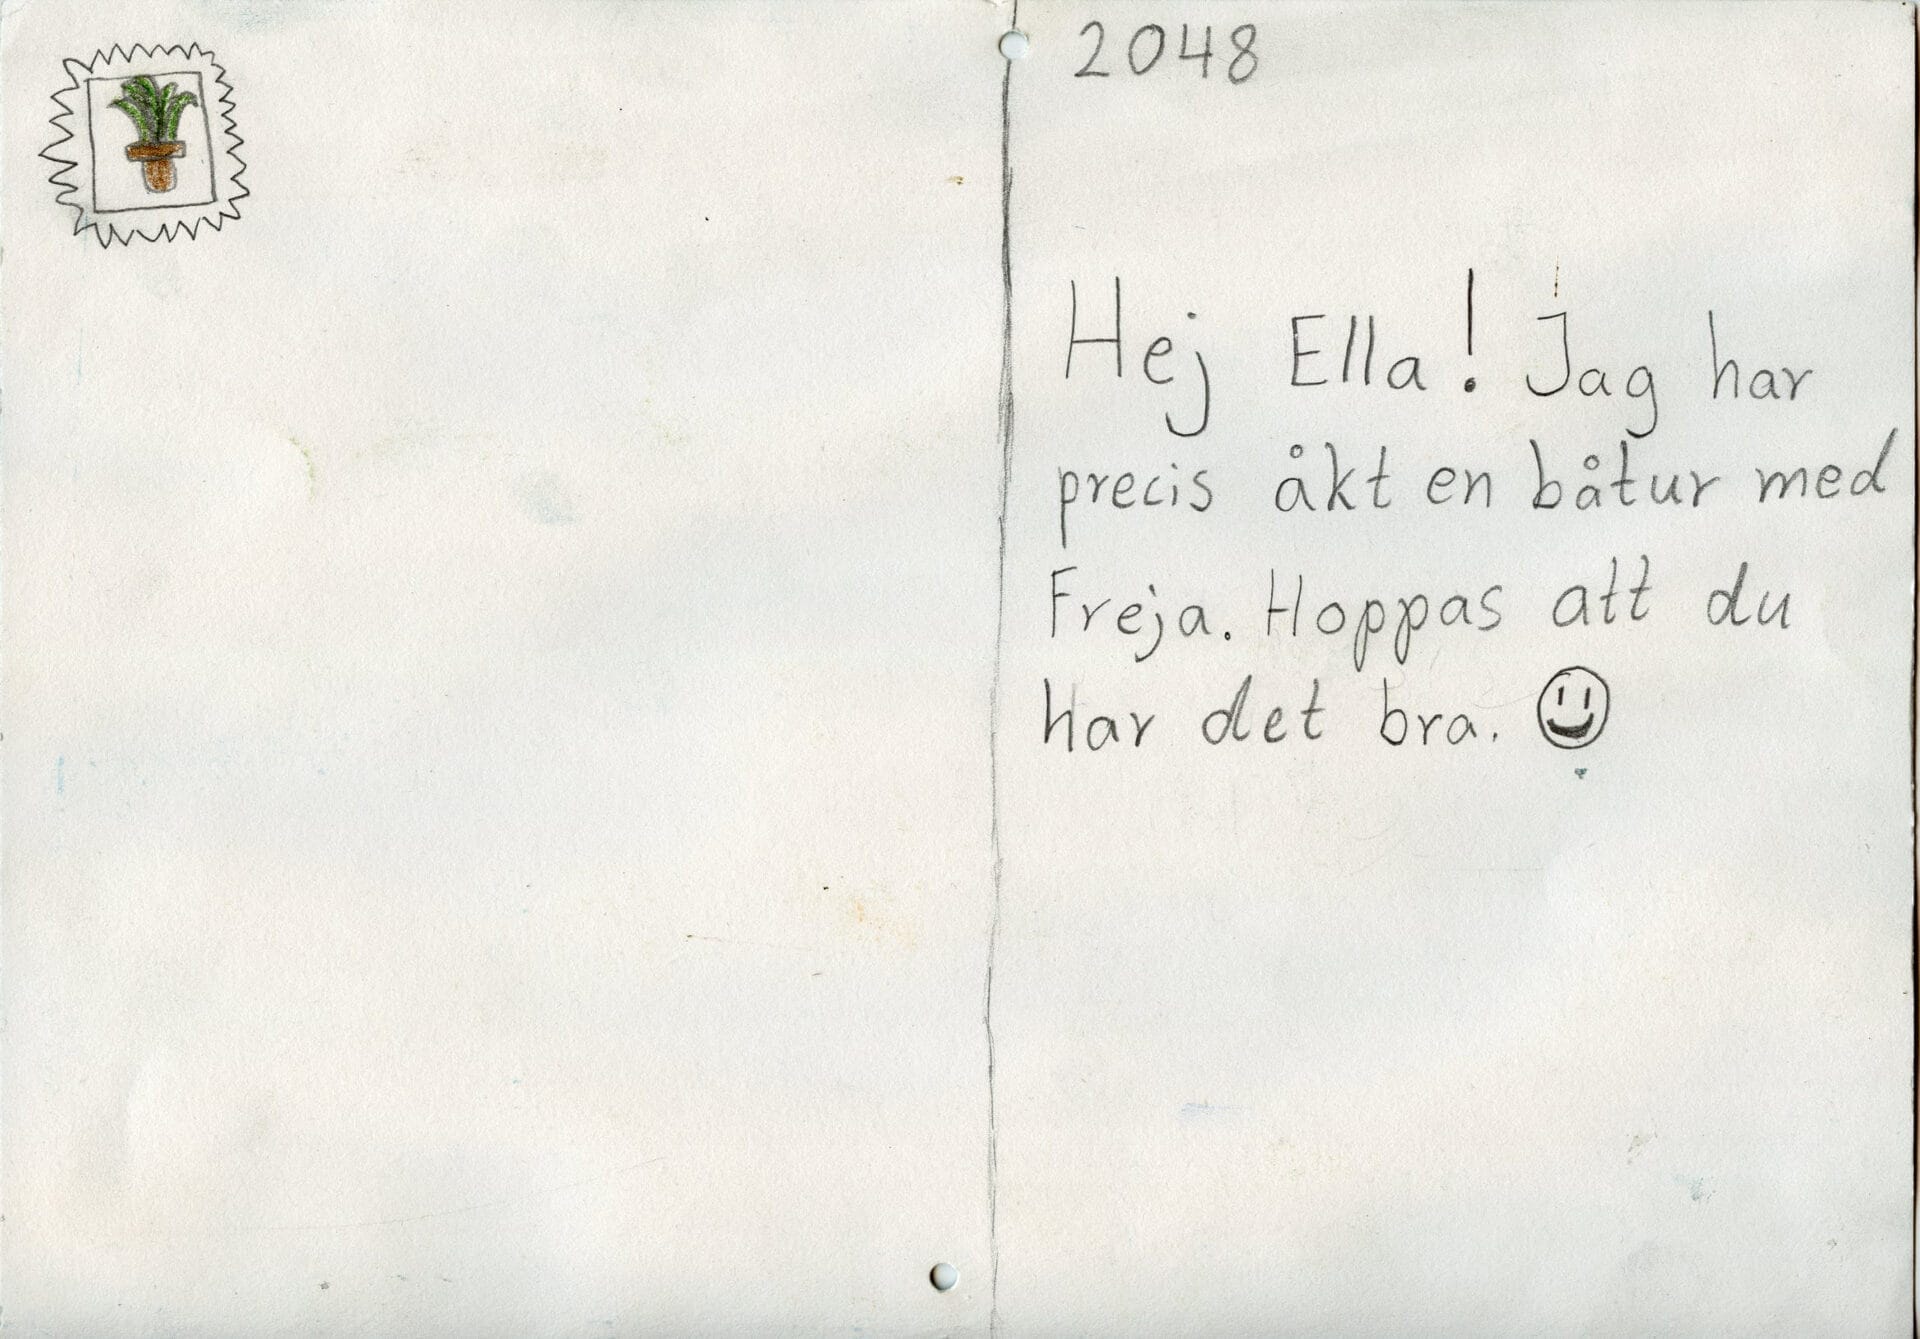 2048
Hej Ella! Jag har
precis åkt en båtur med
Freja. Hoppas att du
har det bra.